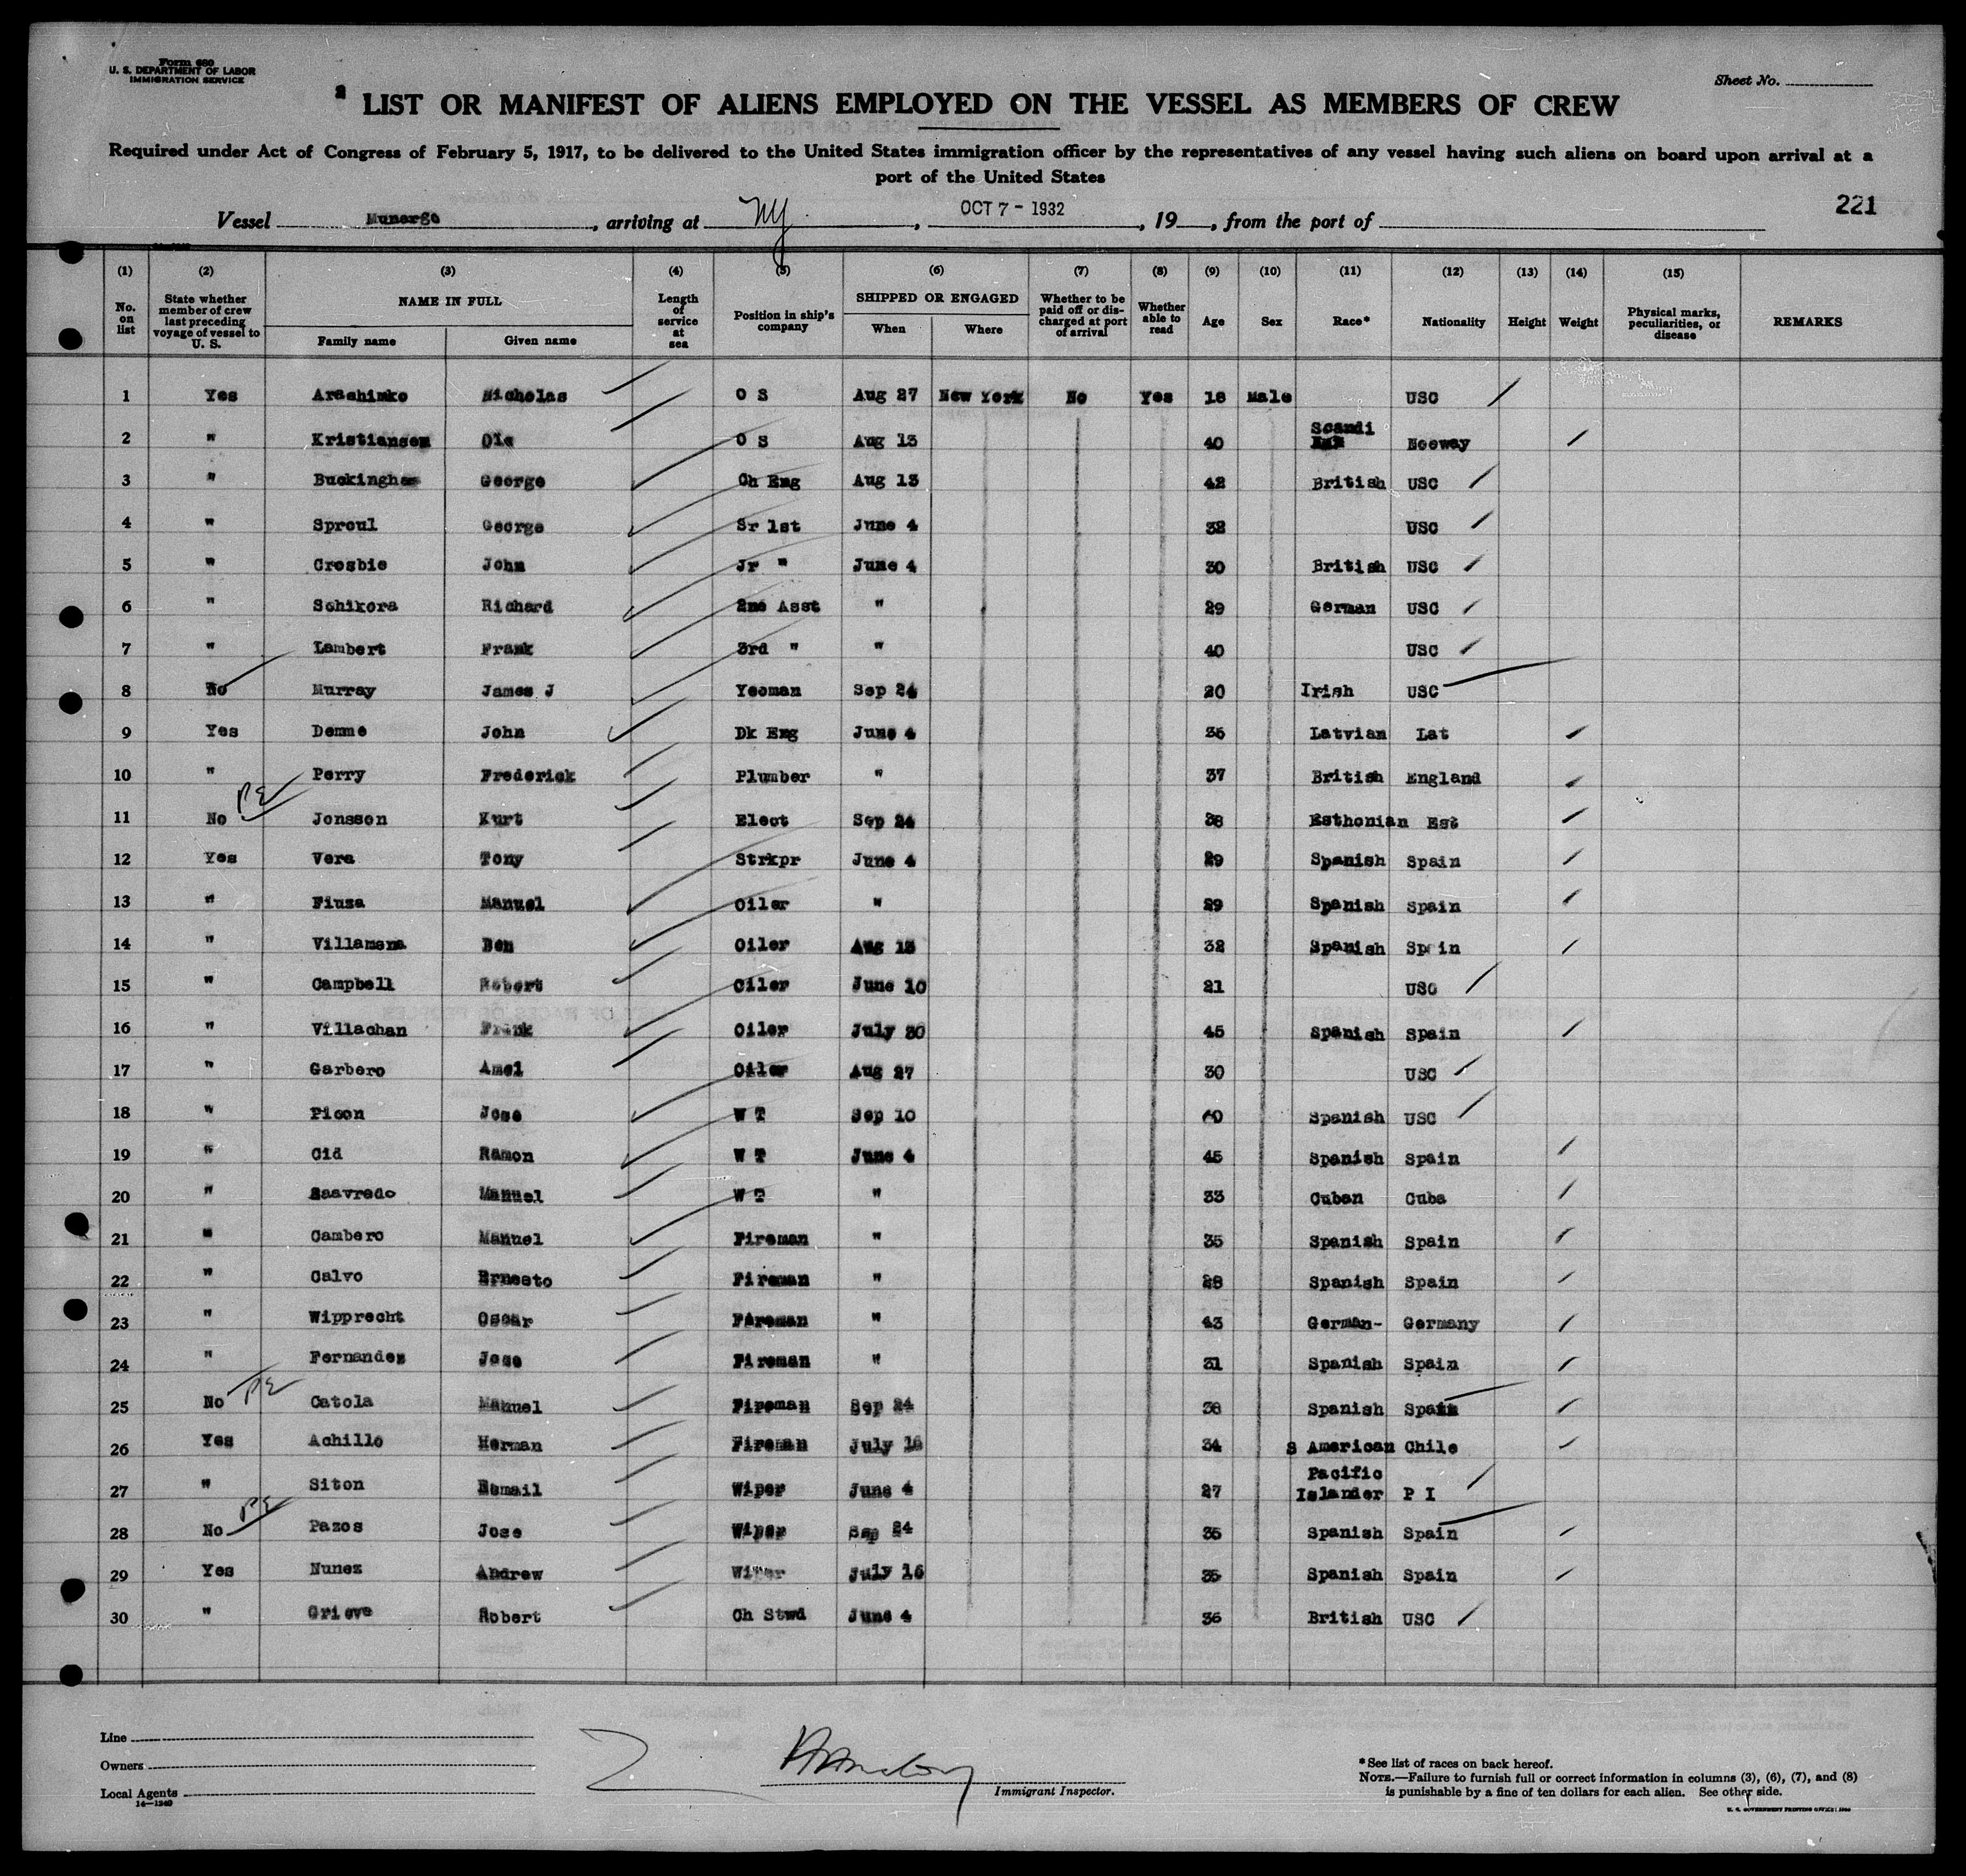 Form 680
U. S. DEPARTMENT OF LABOR
IMMIGRATION SERVICE
Sheet No.
2 LIST OR MANIFEST OF ALIENS EMPLOYED ON THE VESSEL AS MEMBERS OF CREW
Required under Act of Congress of February 5, 1917, to be delivered to the United States immigration officer by the representatives of any vessel having such aliens on board upon arrival at a
port of the United States
221
Vessel Munargo, arriving at NY, OCT 7 - 1932, 19, from the port of
(1) (2) (3) (4) (5) (6) (7) (8) (9) (10) (11) (12) (13) (14) (15)
No. on list
State whether member of crew last preceding voyage of vessel to U. S.
NAME IN FULL
Family name Given name
Length of service at sea
Position in ship's company
SHIPPED OR ENGAGED
When Where
Whether to be paid off or discharged at port of arrival
Whether able to read
Age Sex Race* Nationality Height Weight
Physical marks, peculiarities, or disease
REMARKS
1 Yes Arashimko Nicholas O S Aug 27 New York No Yes 18 Male USC
2 " Kristiansen Ole O S Aug 13 40 Scandi Noeway
3 " Buckingham George Ch Eng Aug 13 42 British USC
4 " Sproul George Sr 1st June 4 32 USC
5 " Crosbie John Jr " June 4 30 British USC
6 " Schikora Richard 2nd Asst " 29 German USC
7 " Lambert Frank 3rd " " 40 USC
8 No Murray James J Yeoman Sep 24 20 Irish USC
9 Yes Demme John Dk Eng June 4 36 Latvian Lat
10 " Perry Frederick Plumber " 37 British England
11 No PE Jonsson Kurt Elect Sep 24 38 Esthonian Est
12 Yes Vera Tony Strkpr June 4 29 Spanish Spain
13 " Fiuza Manuel Oiler " 29 Spanish Spain
14 " Villamena Ben Oiler Aug 13 32 Spanish Sp in
15 " Campbell Robert Oiler June 10 21 USC
16 " Villachan Frank Oiler July 30 45 Spanish Spain
17 " Garbero Amel Oiler Aug 27 30 USC
18 " Picon Jose W T Sep 10 40 Spanish USC
19 " Cid Ramon W T June 4 45 Spanish Spain
20 " Saavredo Manuel W T " 33 Cuban Cuba
21 " Cambero Manuel Fireman " 35 Spanish Spain
22 " Calvo Ernesto Fireman " 28 Spanish Spain
23 " Wipprecht Oscar Fireman " 43 German- Germany
24 " Fernandez Jose Fireman " 31 Spanish Spain
25 No PE Catola Manuel Fireman Sep 24 38 Spanish Spain
26 Yes Achillo Herman Fireman July 16 34 S American Chile
27 " Siton Esmail Wiper June 4 27 Pacific Islander P I
28 No PE Pazos Jose Wiper Sep 24 35 Spanish Spain
29 Yes Nunez Andrew Wiper July 16 35 Spanish Spain
30 " Grieve Robert Ch Stwd June 4 36 British USC
Line
Owners
Local Agents
14—1240
Immigrant Inspector.
*See list of races on back hereof.
NOTE.—Failure to furnish full or correct information in columns (3), (6), (7), and (8)
is punishable by a fine of ten dollars for each alien. See other side.